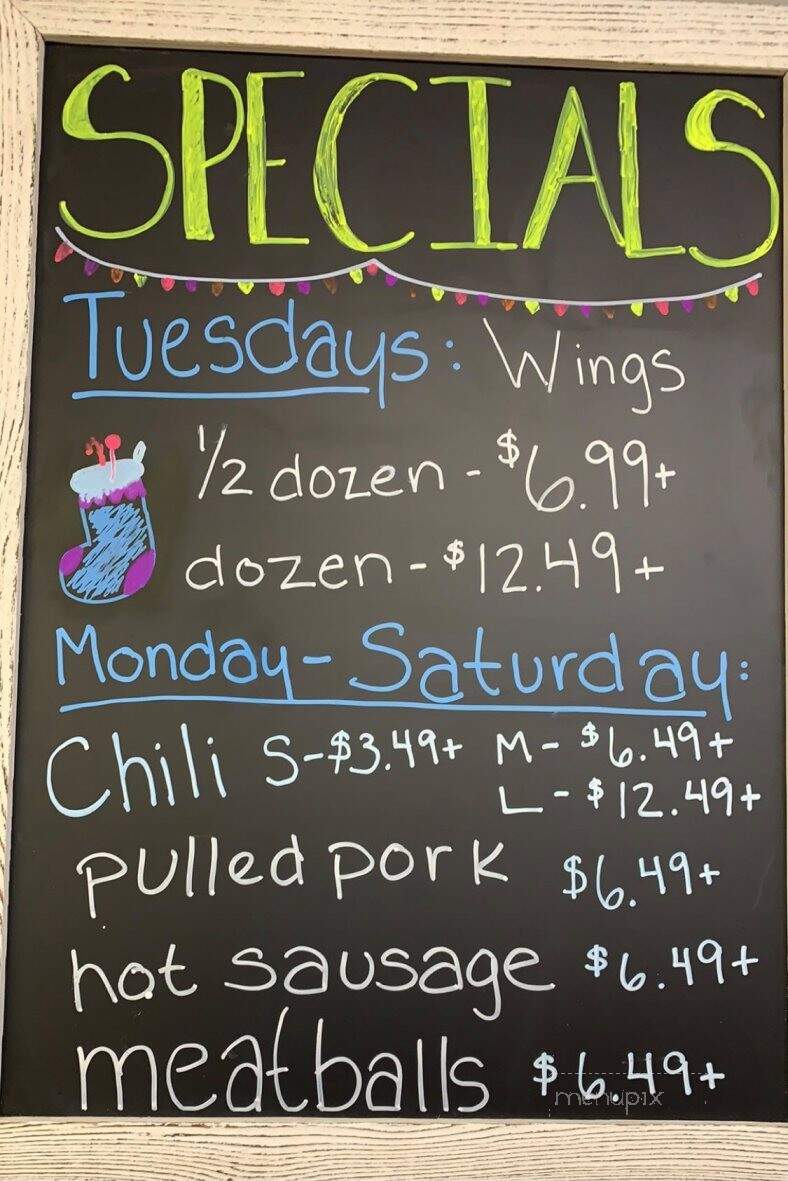 SPECIALS
Tuesdays: Wings
1/2 dozen - $6.99+
dozen - $12.49+
Monday - Saturday:
Chili S-$3.49+ M- $6.49+
L - $12.49+
pulled pork $6.49+
hot sausage $6.49+
meatballs $6.49+
menupix